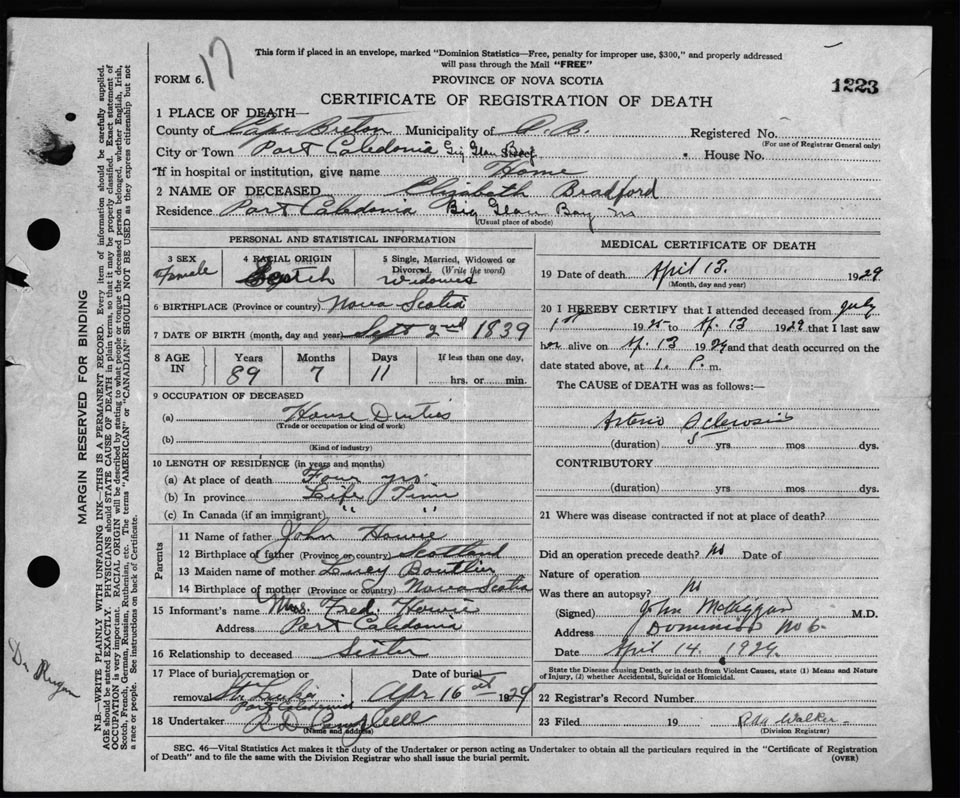 17
This form if placed in an envelope, marked "Dominion Statistics—Free, penalty for improper use, $300," and properly addressed
will pass through the Mail "FREE"
FORM 6.
PROVINCE OF NOVA SCOTIA
1223
CERTIFICATE OF REGISTRATION OF DEATH
1 PLACE OF DEATH—
County of Cape Breton Municipality of C. B. Registered No.
(For use of Registrar General only)
City or Town Port Caledonia Big Glace Bay Street House No.
If in hospital or institution, give name Home
2 NAME OF DECEASED Elizabeth Bradford
Residence Port Caledonia Big Glace Bay NS
(Usual place of abode)
PERSONAL AND STATISTICAL INFORMATION
3 SEX Female
4 RACIAL ORIGIN Scotch
5 Single, Married, Widowed or Divorced (Write the word) Widowed
6 BIRTHPLACE (Province or country) Nova Scotia
7 DATE OF BIRTH (month, day and year) Sept 2nd 1839
8 AGE IN Years Months Days If less than one day,
89 7 11 hrs. or min.
9 OCCUPATION OF DECEASED
(a) House Duties
(Trade or occupation or kind of work)
(b)
(Kind of industry)
10 LENGTH OF RESIDENCE (in years and months)
(a) At place of death Four yrs.
(b) In province Life Time
(c) In Canada (if an immigrant) " "
Parents
11 Name of father John Howie
12 Birthplace of father (Province or country) Scotland
13 Maiden name of mother Lucy Boutlier
14 Birthplace of mother (Province or country) Nova Scotia
15 Informant's name Mrs. Fred. Howie
Address Port Caledonia
16 Relationship to deceased Sister
17 Place of burial, cremation or removal St. Lukes Port Caledonia
Date of burial Apr 16 1929
18 Undertaker R D Campbell
(Name and address)
MEDICAL CERTIFICATE OF DEATH
19 Date of death April 13. 1929
(Month, day and year)
20 I HEREBY CERTIFY that I attended deceased from July
1st 1925 to Ap. 13 1929 that I last saw
her alive on Ap. 13 1929 and that death occurred on the
date stated above, at 1. P. m.
The CAUSE of DEATH was as follows:—
Arterio Sclerosis
(duration) 5 yrs mos dys.
CONTRIBUTORY
(duration) yrs mos dys.
21 Where was disease contracted if not at place of death?
Did an operation precede death? No Date of
Nature of operation
Was there an autopsy? No
(Signed) John M. M.D.
Address Dominion No 6
Date April 14. 1929.
State the Disease causing Death, or in death from Violent Causes, state (1) Means and Nature
of Injury, (2) whether Accidental, Suicidal or Homicidal.
22 Registrar's Record Number
23 Filed 19 Walker
(Division Registrar)
SEC. 46—Vital Statistics Act makes it the duty of the Undertaker or person acting as Undertaker to obtain all the particulars required in the "Certificate of Registration
of Death" and to file the same with the Division Registrar who shall issue the burial permit. (OVER)
MARGIN RESERVED FOR BINDING
N.B.—WRITE PLAINLY WITH UNFADING INK—THIS IS A PERMANENT RECORD. Every item of information should be carefully supplied.
AGE should be stated EXACTLY. PHYSICIANS should STATE CAUSE OF DEATH in plain terms, so that it may be properly classified. Exact statement of
OCCUPATION is very important. RACIAL ORIGIN will be described by stating to what people or tongue the deceased person belonged, whether English, Irish,
Scotch, French, German, Russian, Ruthenian, etc. The terms "AMERICAN" or "CANADIAN" SHOULD NOT BE USED as they express citizenship but not
a race or people. See instructions on back of Certificate.
Dr